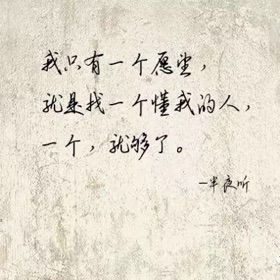 我只有一个愿望，
就是找一个懂我的人，
一个，就够了。
—半夜听